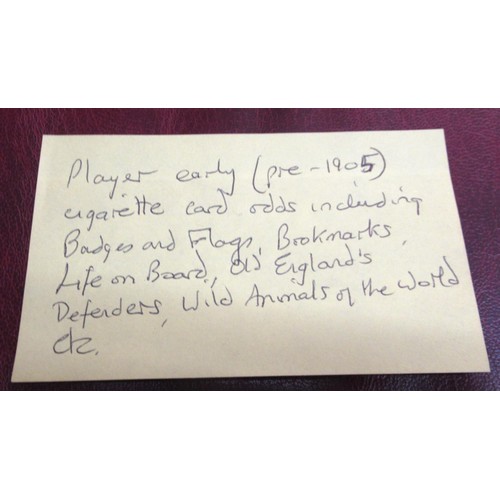 Player early (pre-1905)
cigarette card odds including
Badges and Flags, Bookmarks,
Life on Board, Old England's
Defenders, Wild Animals of the World
etc.